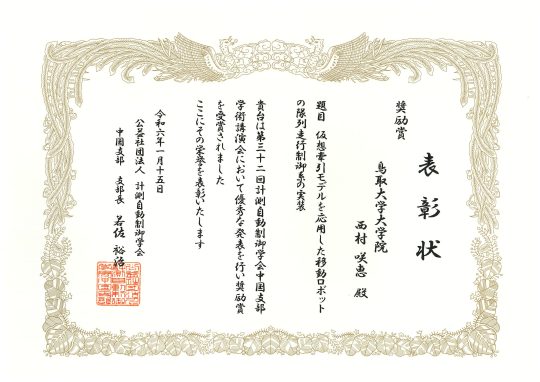 表彰状
奨励賞
鳥取大学大学院
西村 咲恵 殿
題目 仮想牽引モデルを応用した移動ロボット
の隊列走行制御系の実装
貴台は第三十二回計測自動制御学会中国支部
学術講演会において優秀な発表を行い奨励賞
を受賞されました
ここにその栄誉を表彰いたします
令和六年一月十五日
公益社団法人 計測自動制御学会
中国支部 支部長 若佐 裕治